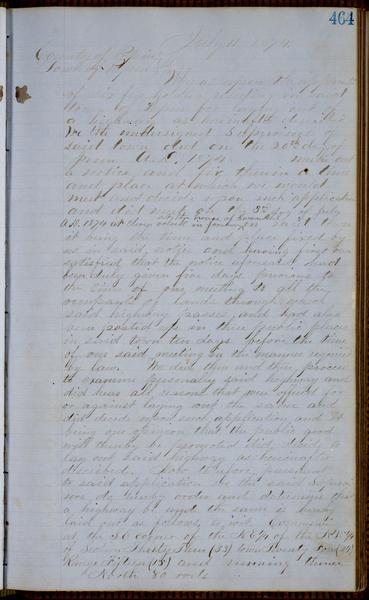 464
July 11 1874
County of
Town of
Whereas upon the application
of six freeholders residing in said
town of for laying out
a highway as hereinafter described
We the undersigned Supervisors of
said town did on the 20th day of
June A.D. 1874 make out
a notice and fix therein a time
and place at which we would
meet and decide upon such application
and did meet on the 3rd day of July
A.D. 1874 at the house of in said town
it being the time and place fixed
in said notice and having first been
satisfied that the notice aforesaid had
been duly given five days previous to
the time of our meeting to all the
occupants of lands through which
said highway passes and had also
been posted up in three public places
in said town ten days before the time
of our said meeting in the manner required
by law. We did then and there proceed
to examine personally said highway and
did hear all reasons that were offered for
or against laying out the same and
did decide upon such application and
being our opinion that the public good
will thereby be promoted did decide to
lay out said highway as hereinafter
described. Now therefore pursuant
to said application we the said Supervi
sors do hereby order and determine that
a highway be and the same is hereby
laid out as follows to wit. Commencing
at the SE corner of the NE 1/4 of the NW 1/4
of Section Thirty Three (33) town Twenty Four (24)
Range Fifteen (15) and running thence
North 80 rods